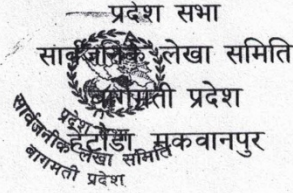 प्रदेश सभा
सार्वजनिक लेखा समिति
बागमती प्रदेश
हेटौंडा, मकवानपुर
प्रदेश
सार्वजनिक लेखा समिति
बागमती प्रदेश